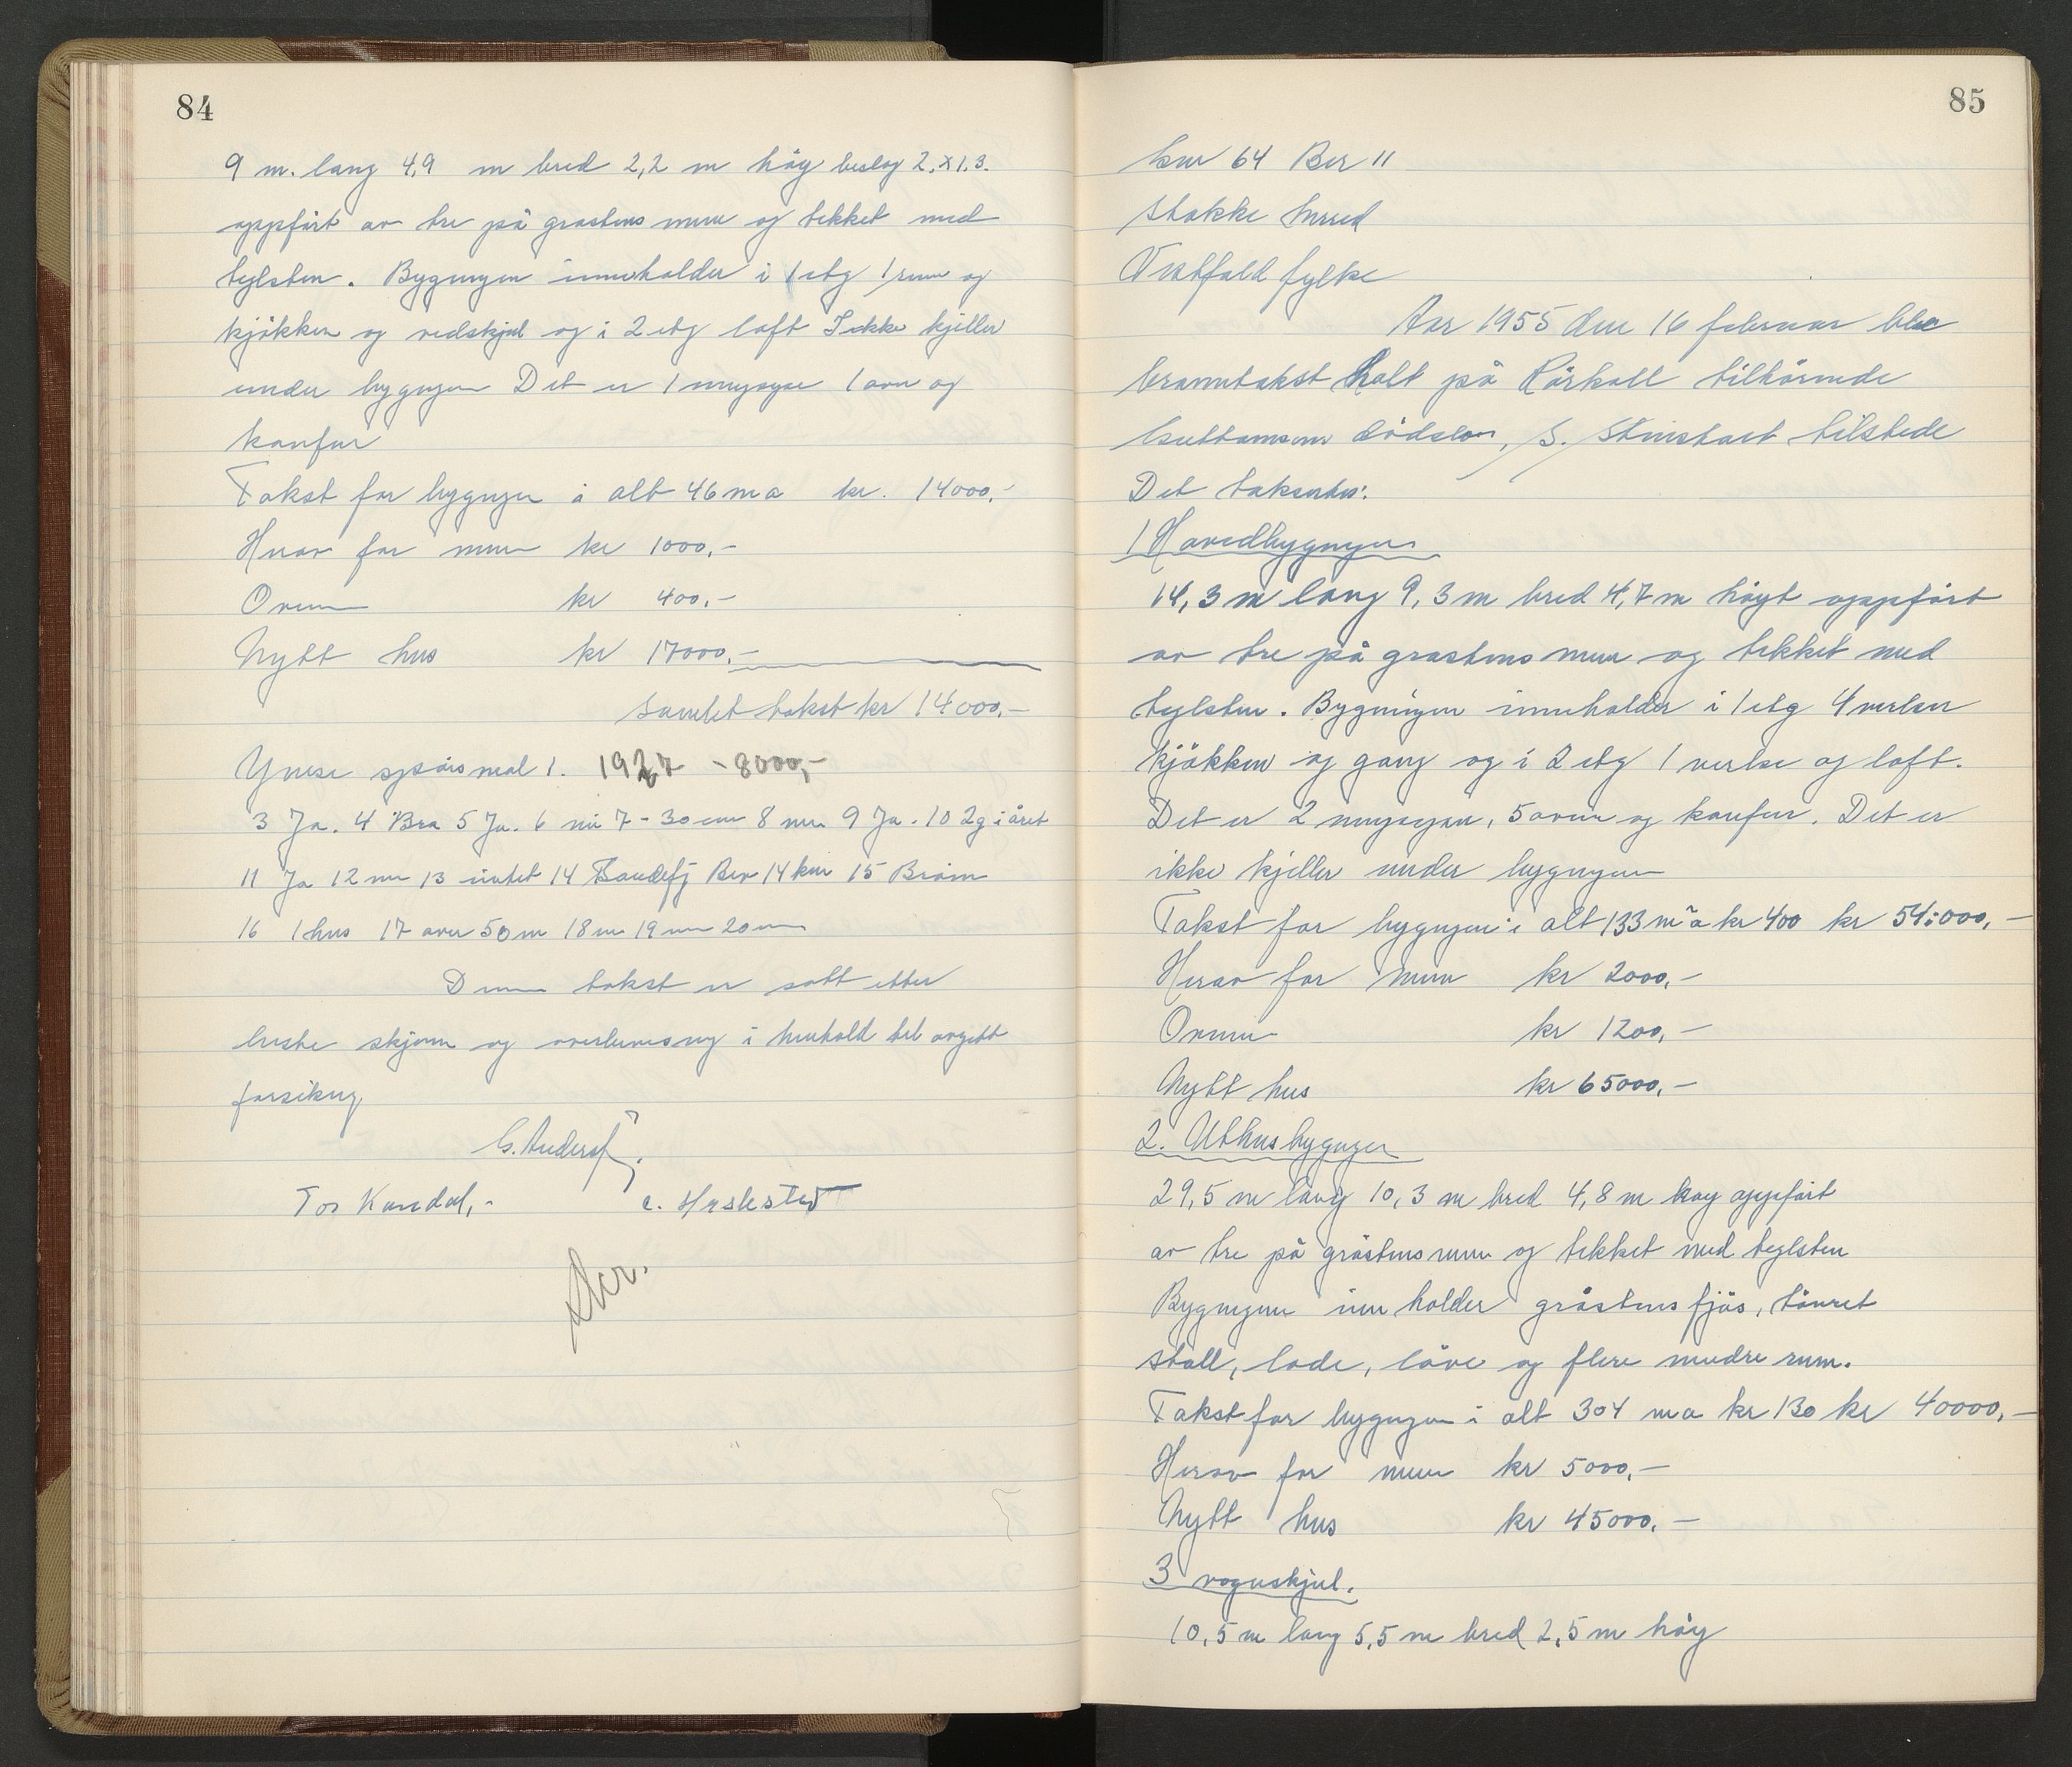 84
9 m. lang 4,9 m bred 2,2 m höy beslag 2,x1,3.
oppfört av tre på grastens mur og tekket med
teglsten. Bygningen inneholder i 1 etg 1 rum og
kjökken og vedskjul og i 2 etg loft Ikke kjeller
under bygningen Det er 1 murpipe 1 ovn og
komfur
Takst for bygningen i alt 46 m a kr. 14000,-
Herav for mur kr 1000,-
Ovnen kr 400,-
Nytt hus kr 17000,-
Samlet takst kr 14000,-
Ymse spörsmal 1. 1927 - 8000,-
3 Ja. 4 Bra 5 Ja. 6 nei 7 - 30 cm 8 nei 9 Ja. 10 2 g i året
11 Ja 12 nei 13 intet 14 Sandefj Ber 14 km 15 Brönn
16 1 hus 17 over 50 m 18 nei 19 nei 20 nei
Denne takst er satt etter
beste skjönn og overbevisning i henhold til avgitt
forsikring
G. Anders
Tor Kamdal,-
85
bnr 64 Bnr 11
Stokke herred
Vestfold fylke
Aar 1955 den 16 februar ble
branntakst holt på Rörkoll tilhörende
Guttormsen dödsbo, S. tilstede
Det takseres:
1 Hovedbygningen
14,3 m lang 9,3 m bred 4,7 m höyt oppfört
av tre på grastens mur og tekket med
teglsten. Bygningen inneholder i 1 etg 4 verlser
kjökken og gang og i 2 etg 1 verlse og loft.
Det er 2 murpiper, 5 ovner og komfur. Det er
ikke kjeller under bygningen
Takst for bygningen i alt 133 m² a kr 400 kr 54:000,-
Herav for mur kr 2000,-
Ovnen kr 1200,-
Nytt hus kr 65000,-
2. Uthusbygningen
29,5 m lang 10,3 m bred 4,8 m höy oppfört
av tre på gråstens mur og tekket med teglsten
Bygningen inneholder gråstens fjös, tömret
stall, lade, låve og flere mindre rum.
Takst for bygningen i alt 304 m a kr 130 kr 40000,-
Herav for mur kr 5000,-
Nytt hus kr 45000,-
3 vognskjul.
10,5 m lang 5,5 m bred 2,5 m höy